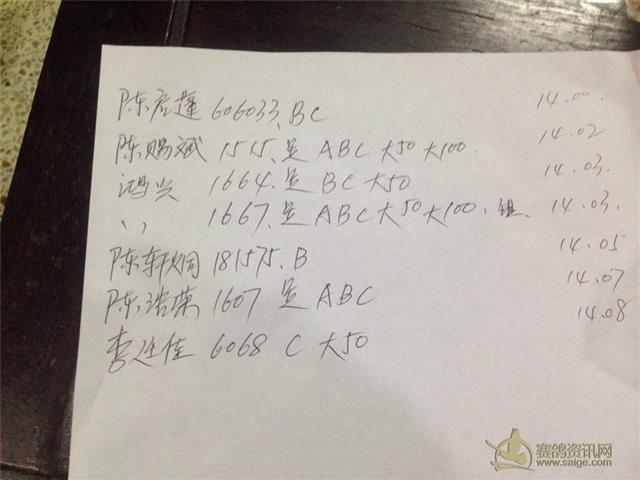 陈启蓬 606033、BC 14.00.
陈赐斌 1515、是 ABC 大50 大100. 14.02
鸿兴 1664.是 BC 大50 14.03.
、、 1667、是 ABC 大50 大100、组. 14.03.
陈轩炯 181575、B 14.05
陈浩荣 1607 是 ABC 14.07
李廷佳 6068 C 大50 14.08
赛鸽资讯网
www.saige.com